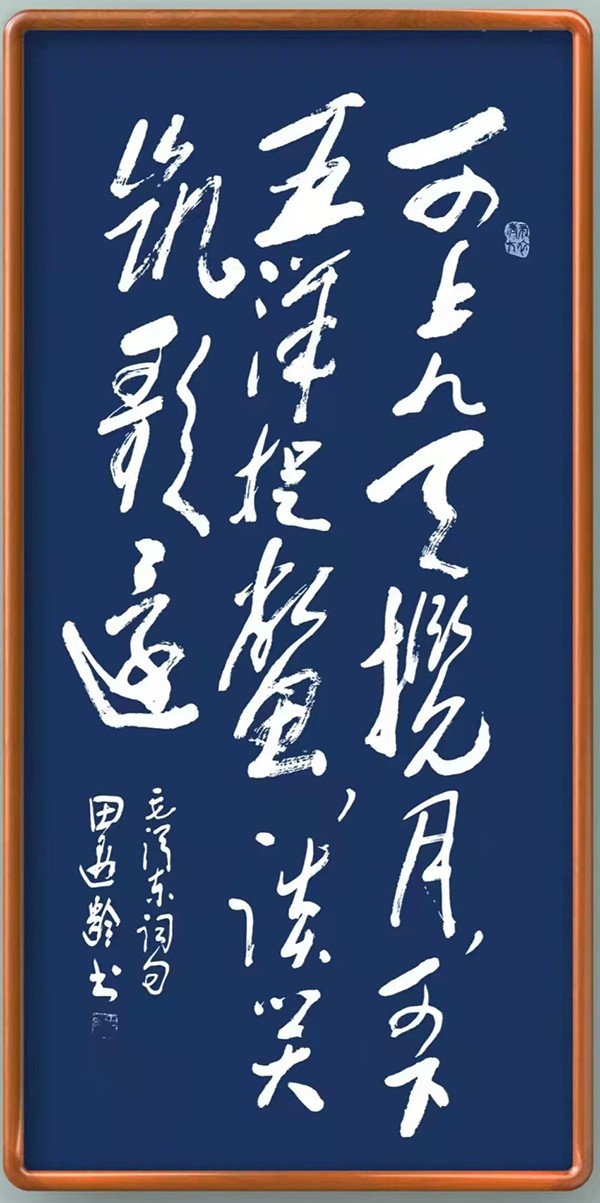 可上九天揽月,可下
五洋捉鳖,谈笑
凯歌還
毛泽东词句
田龄书